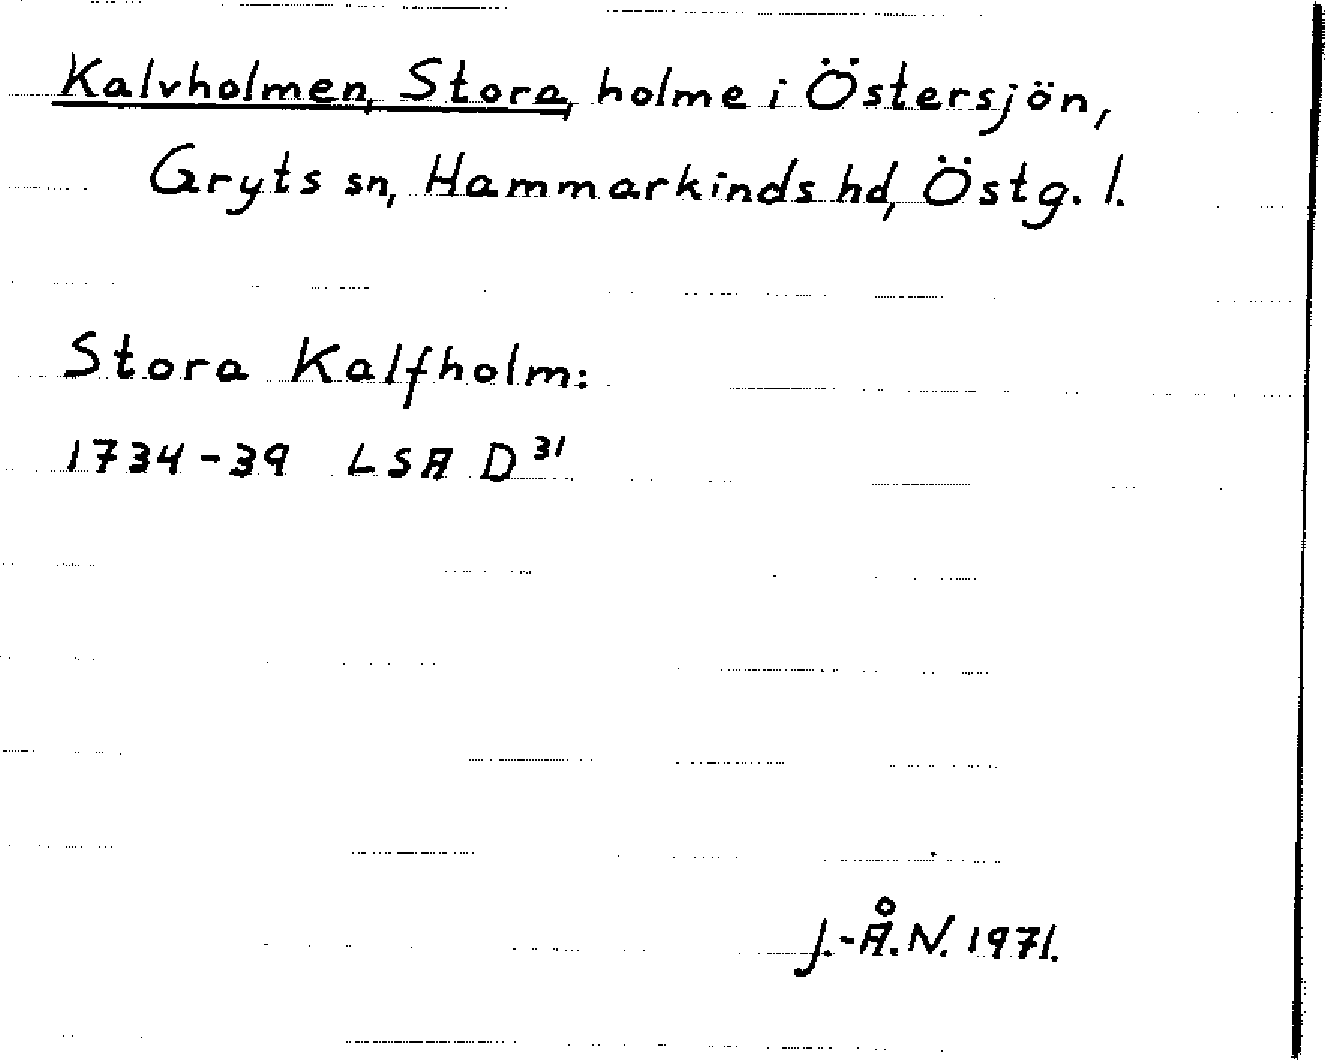 Kalvholmen, Stora, holme i Östersjön,
Gryts sn, Hammarkinds hd, Östg. l.
Stora Kalfholm:
1734-39 LSA D³¹
J.-Å.N. 1971.